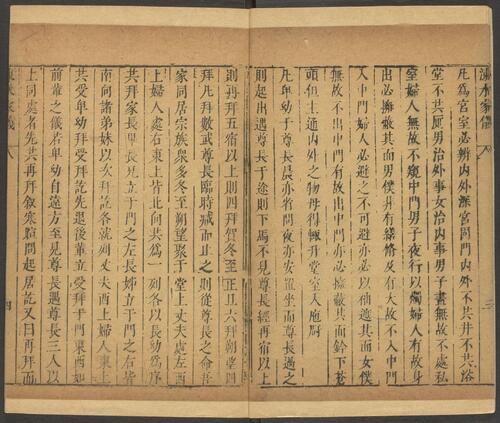 涑水家儀 八 三
凡為宮室必辨內外深宮固門內外不共井不共浴
堂不共厠男治外事女治內事男子晝無故不處私
室婦人無故不窺中門男子夜行以燭婦人有故身
出必擁蔽其面男僕非有繕脩及有大故不入中門
入中門婦人必避之不可避亦必以袖遮其面女僕
無故不出中門有故出中門亦必擁蔽其面鈴下蒼
頭但主通內外之物毋得輒升堂室入庖厨
凡卑幼于尊長晨亦省問夜亦安置坐而尊長過之
則起出遇尊長于途則下馬不見尊長經再宿以上
則再拜五宿以上則四拜賀冬至正旦六拜朔望四
拜凡拜數或尊長臨時減而止之則從尊長之命吾
家同居宗族衆多冬至朔望聚于堂上丈夫處左西
上婦人處右東上皆北向共為一列各以長幼為序
共拜家長畢長兄立于門之左長姊立于門之右皆
南向諸弟妹以次拜訖各就列丈夫西上婦人東上
共受卑幼拜受拜訖先退後輩立受拜于門東西如
前輩之儀若卑幼自遠方至見尊長遇尊長三人以
上同處者先共再拜敘寒暄問起居訖又曰再拜而
家儀 八 四